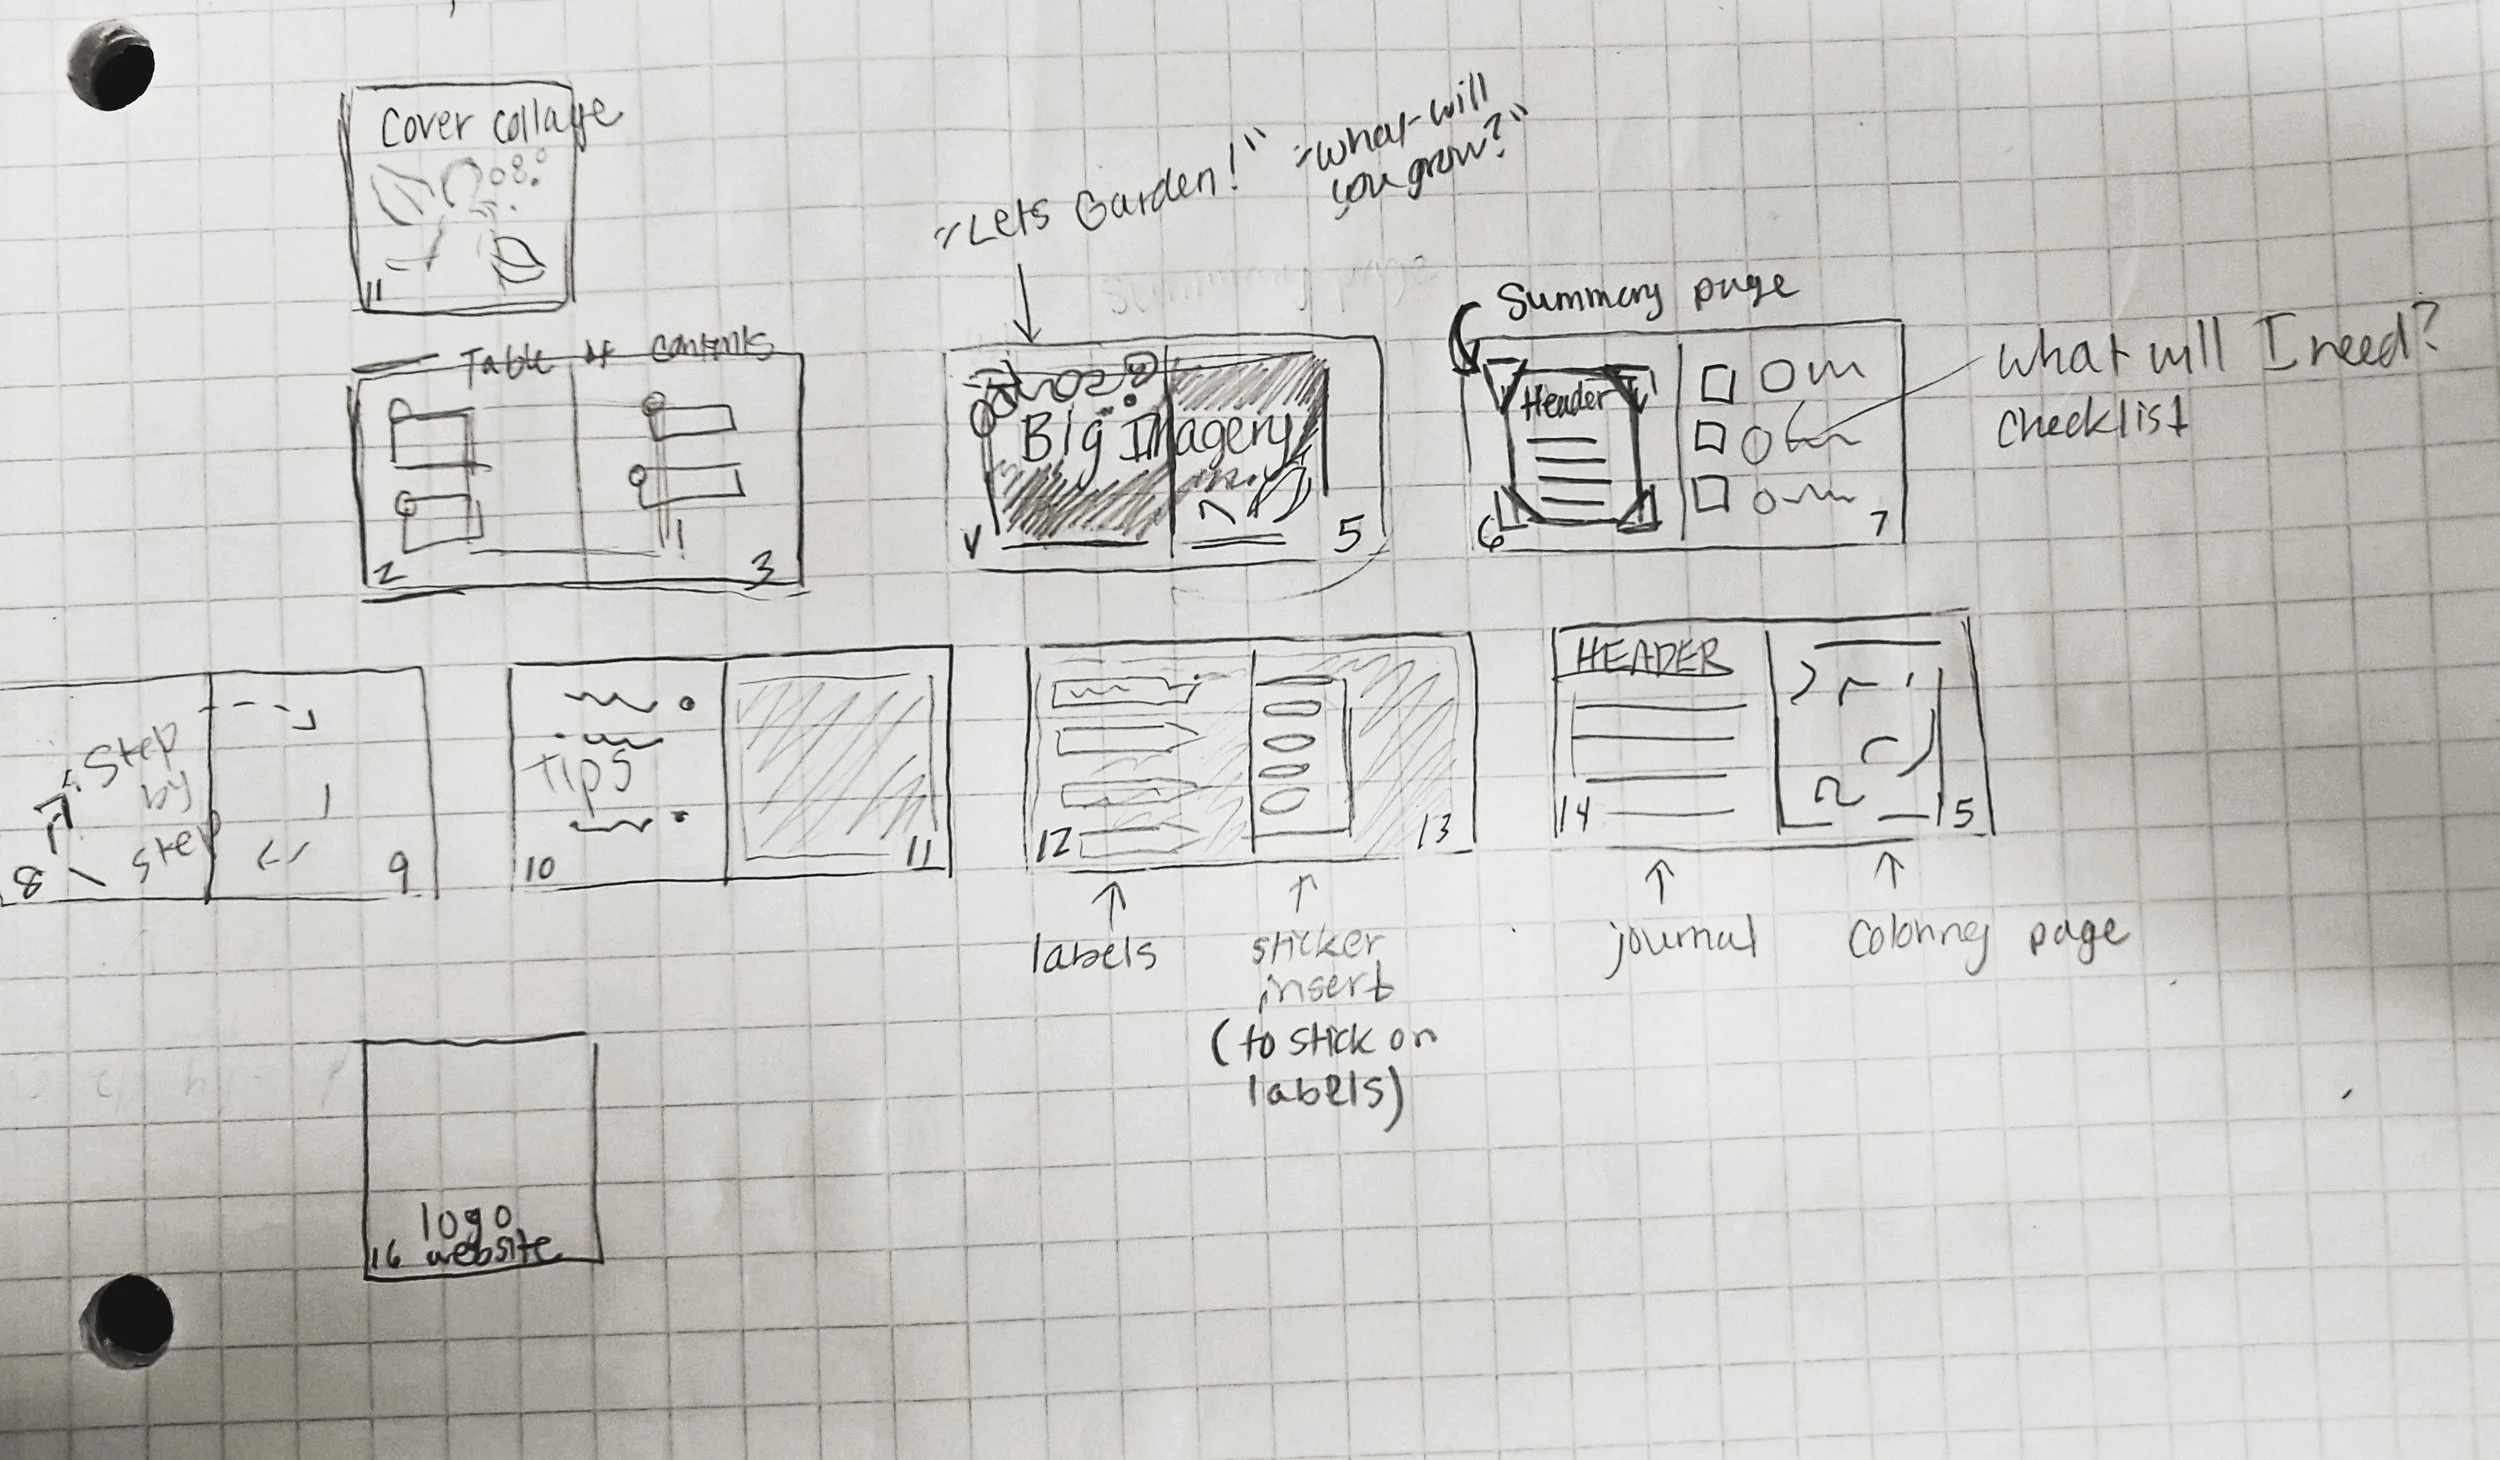 Cover collage
"Lets Garden!"
"what will
you grow?"
Summary page
Summary page
Table of contents
2
3
Big Imagery
5
Header
6
7
what will I need?
checklist
Step
by
step
8
9
Tips
10
11
12
13
HEADER
14
15
labels
sticker
insert
(to stick on
labels)
journal
Coloring page
logo
16 website